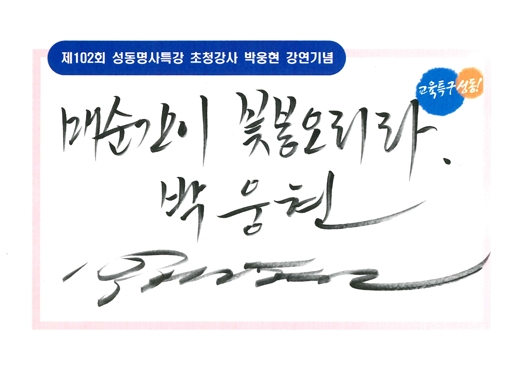 제102회 성동명사특강 초청강사 박웅현 강연기념
교육특구 성동!
매순간이 꽃봉오리라.
박웅현